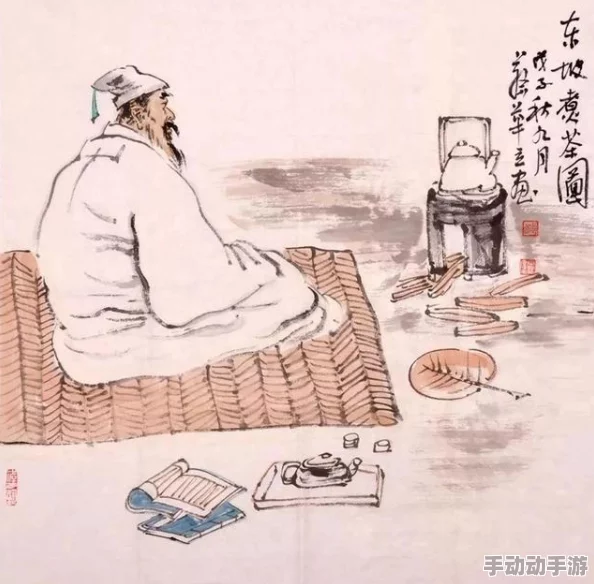 东坡煮茶圖
戊子秋九月
蔡華立画
手动动手游